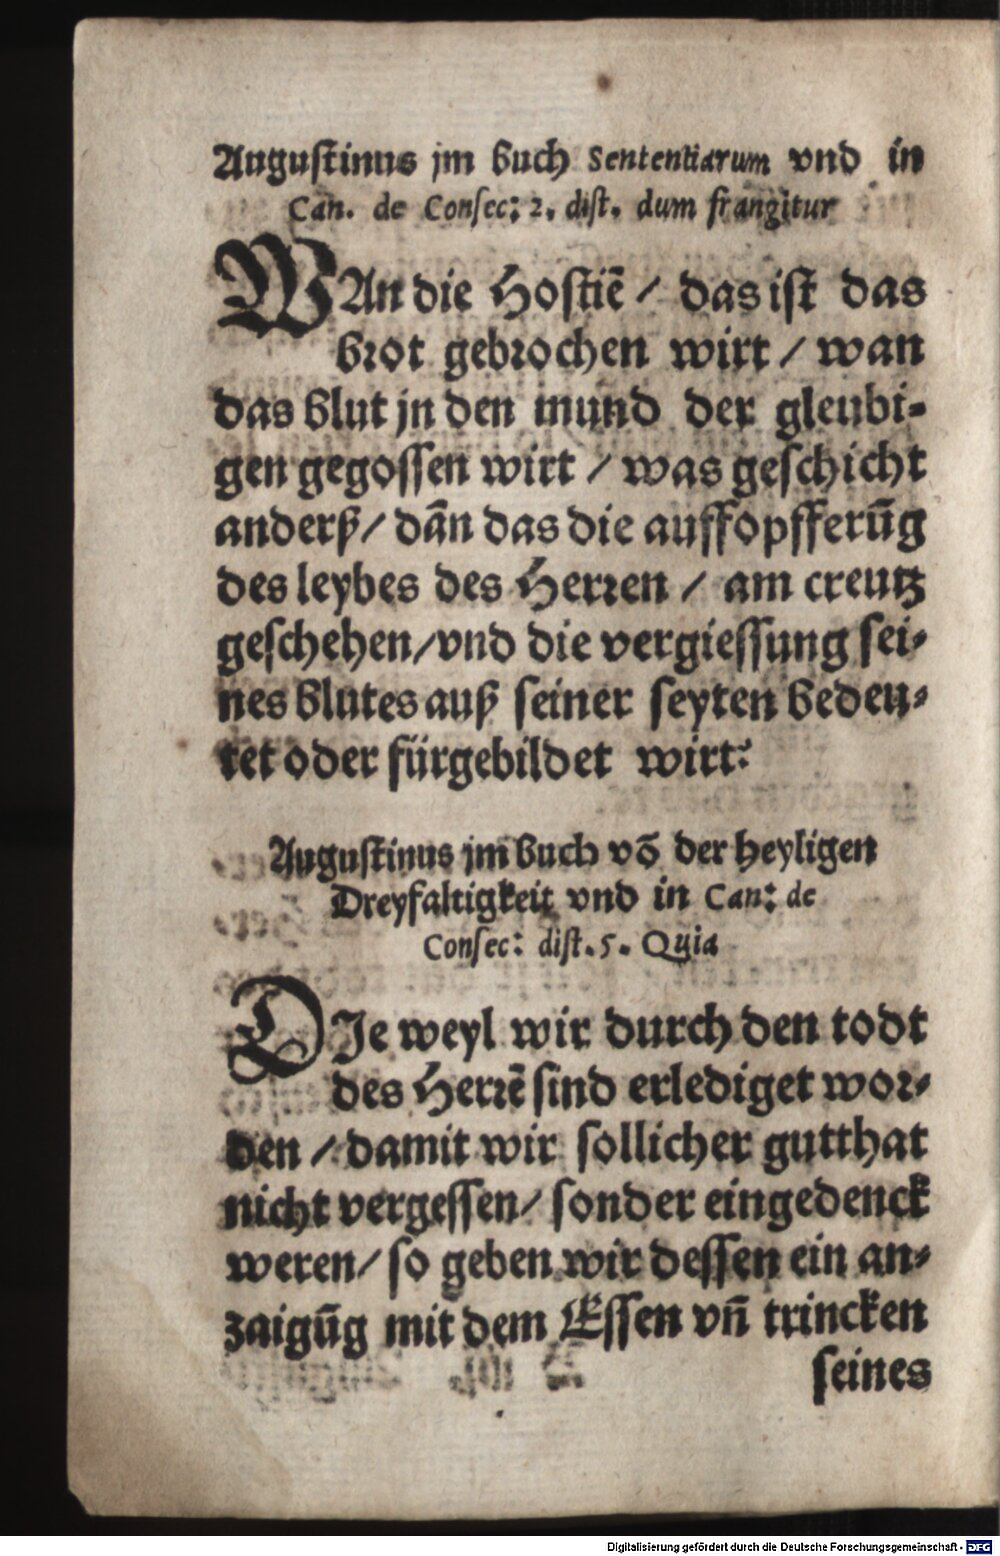 Augustinus jm buch Sententiarum vnd in
Can. de Consec: 2. dist. dum frangitur
WAn die Hostiē / das ist das
brot gebrochen wirt / wan
das blut jn den mund der gleubi-
gen gegossen wirt / was geschicht
anderß / dān das die auffopfferūg
des leybes des Herren / am creutz
geschehen / vnd die vergiessung sei-
nes blutes auß seiner seyten bedeu-
tet oder fürgebildet wirt:
Augustinus jm buch võ der heyligen
Dreyfaltigkeit vnd in Can: de
Consec: dist. 5. Quia
DIe weyl wir durch den todt
des Herrē sind erlediget wor-
den / damit wir sollicher gutthat
nicht vergessen / sonder eingedenck
weren / so geben wir dessen ein an-
zaigūg mit dem Essen vñ trincken
seines
Digitalisierung gefördert durch die Deutsche Forschungsgemeinschaft - DFG